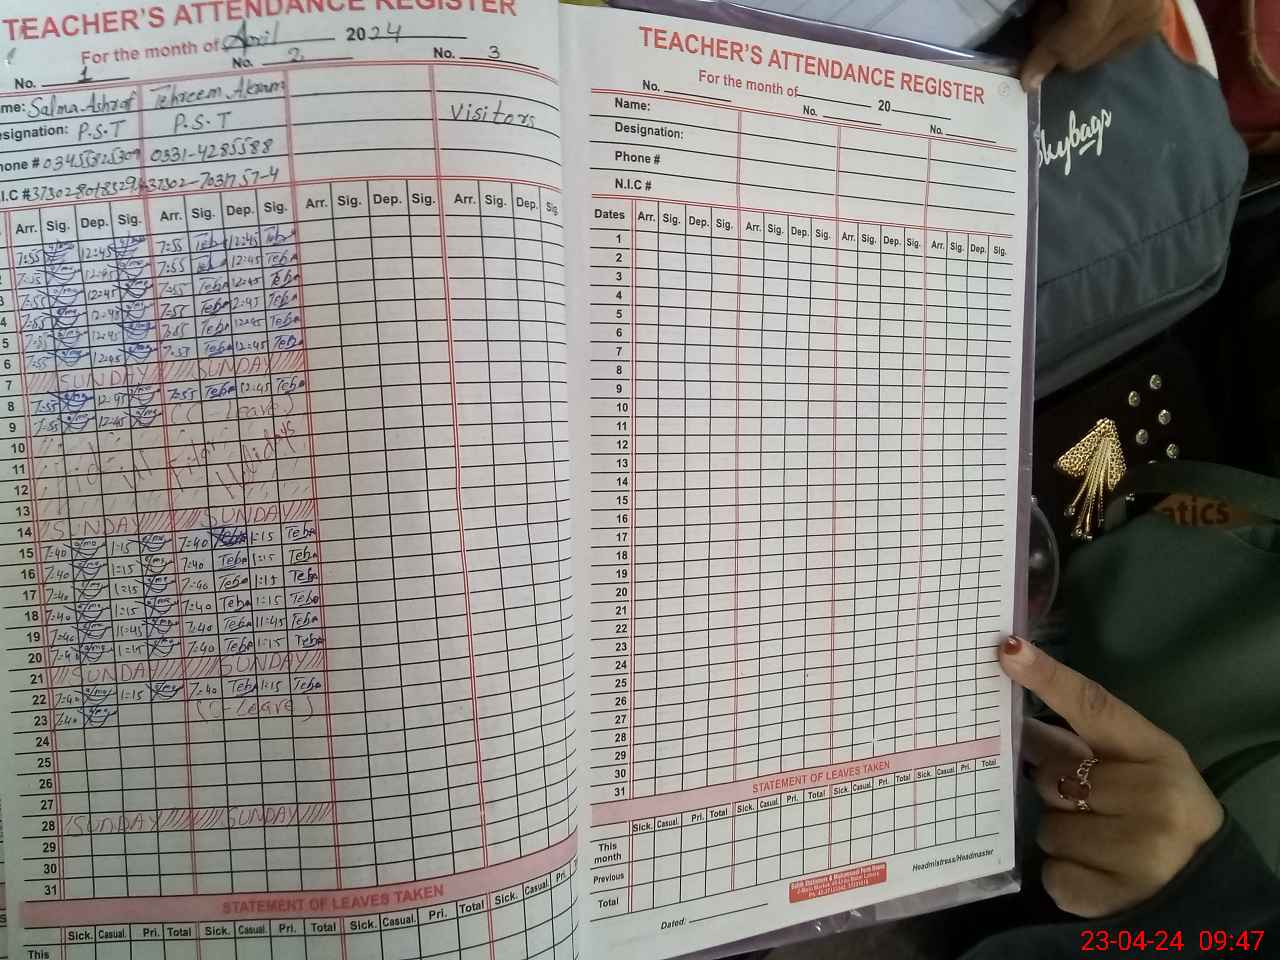 TEACHER'S ATTENDANCE REGISTER
For the month of April 2024
No. 1 No. 2 No. 3
Name: Salma Ashraf Tehreem Akram Visitors
Designation: P.S.T P.S.T
Phone # 0331-4285588
N.I.C #
Arr. Sig. Dep. Sig. Arr. Sig. Dep. Sig. Arr. Sig. Dep. Sig. Arr. Sig. Dep. Sig.
7:55 12:45 7:55 Teba 12:45 Teba
2 7:55 12:45 7:55 Teba 12:45 Teba
3 7:55 12:45 7:55 Teba 12:45 Teba
4 7:55 12:45 7:55 Teba 12:45 Teba
5 7:55 12:45 7:55 Teba 12:45 Teba
6 7:55 12:45 7:55 Teba 12:45 Teba
7 SUNDAY SUNDAY
8 7:55 12:45 7:55 Teba 12:45 Teba
9 7:55 12:45 (C-Leave)
10
11 Eid ul Fitar Holidays
12
13
14 SUNDAY SUNDAY
15 7:40 1:15 7:40 Teba 1:15 Teba
16 7:40 1:15 7:40 Teba 1:15 Teba
17 7:40 1:15 7:40 Teba 1:15 Teba
18 7:40 1:15 7:40 Teba 1:15 Teba
19 7:40 11:45 7:40 Teba 11:45 Teba
20 7:40 1:15 7:40 Teba 1:15 Teba
21 SUNDAY SUNDAY
22 7:40 1:15 7:40 Teba 1:15 Teba
23 7:40 (C-Leave)
24
25
26
27
28 SUNDAY SUNDAY
29
30
31
STATEMENT OF LEAVES TAKEN
Sick. Casual. Pri. Total Sick. Casual. Pri. Total Sick. Casual. Pri. Total Sick. Casual. Pri.
This
TEACHER'S ATTENDANCE REGISTER
For the month of 20
No. No. No.
Name:
Designation:
Phone #
N.I.C #
Dates Arr. Sig. Dep. Sig. Arr. Sig. Dep. Sig. Arr. Sig. Dep. Sig. Arr. Sig. Dep. Sig.
1
2
3
4
5
6
7
8
9
10
11
12
13
14
15
16
17
18
19
20
21
22
23
24
25
26
27
28
29
30
31
STATEMENT OF LEAVES TAKEN
Sick. Casual. Pri. Total Sick. Casual. Pri. Total Sick. Casual. Pri. Total Sick. Casual. Pri. Total
This month
Previous
Total
Headmistress/Headmaster
Dated:
Skybags
atics
23-04-24 09:47